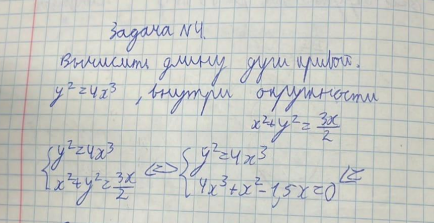 Задача №4.
Вычислить длину дуги кривой.
y²=4x³, внутри окружности
x²+y²=3x/2
{y²=4x³ {y²=4x³
{x²+y²=3x/2 <=> {4x³+x²-1,5x=0 <=>